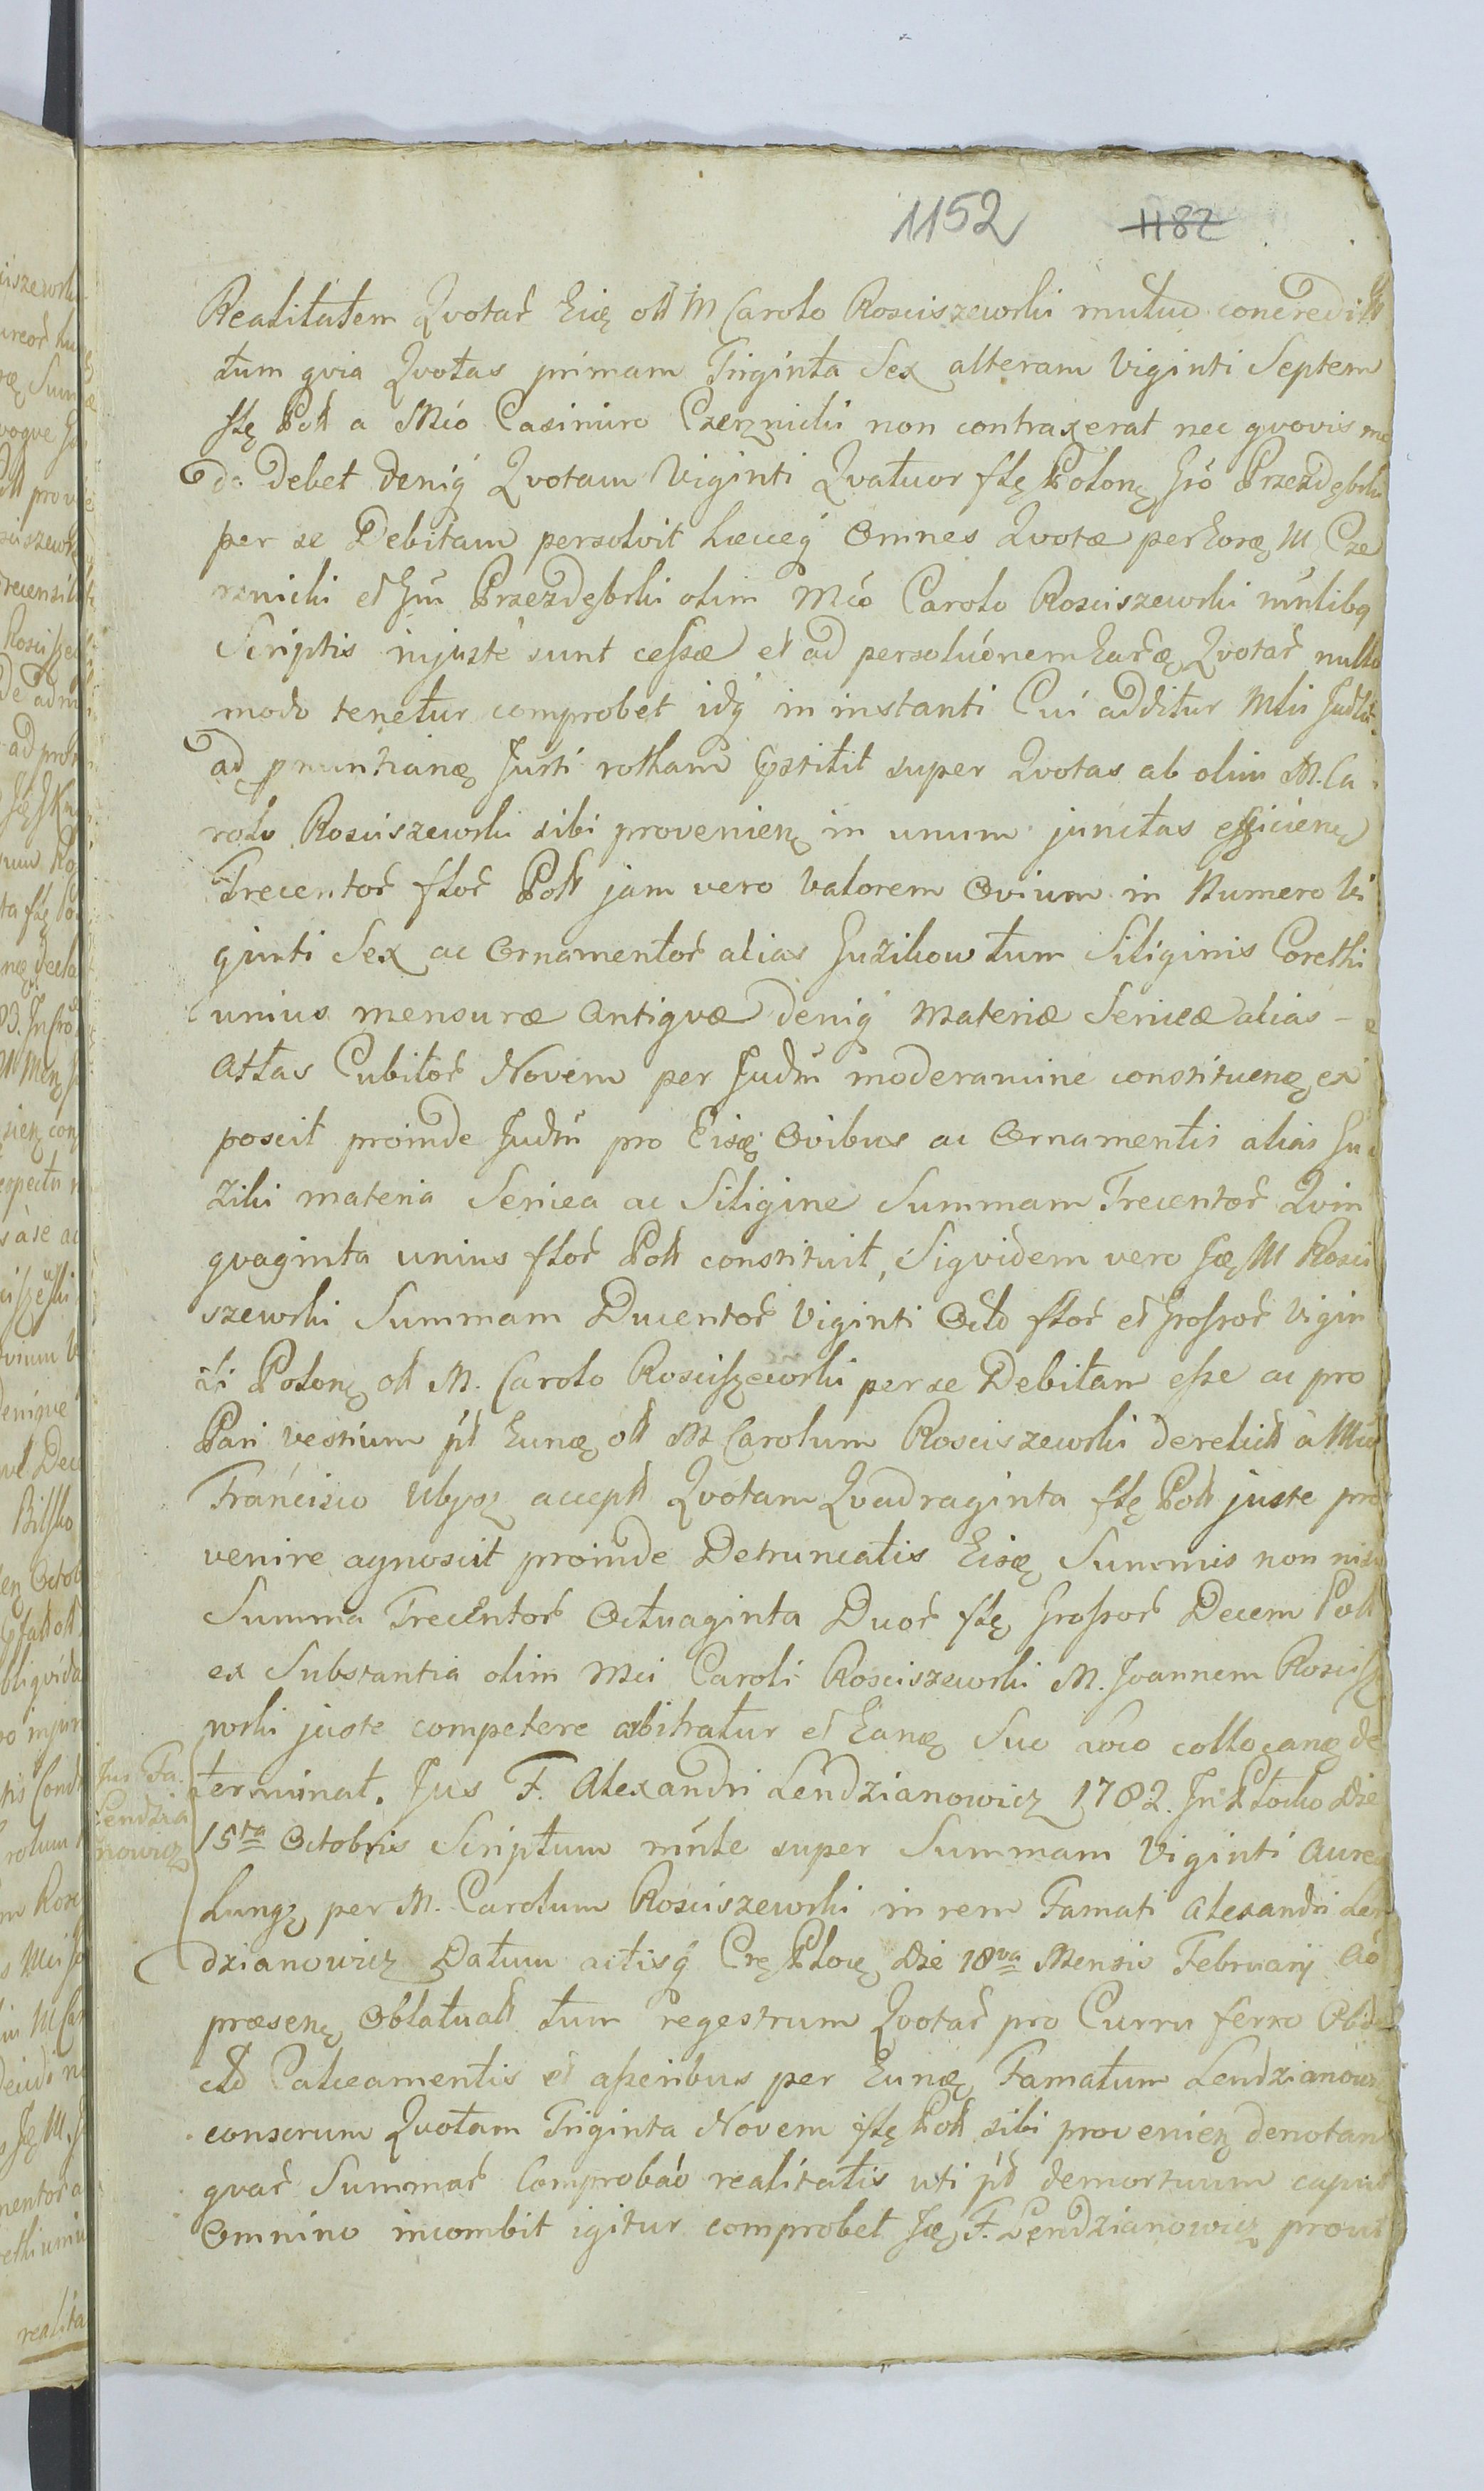 1152 1182
Realitatem Qvotar̃ Eiꝫ olł M Carolo Rosciszewski mutuo concredił
tum qvia Qvotas primam Triginta Sex alteram Viginti Septem
flꝫ Poll a Mco Casimiro Czernicki non contraxerat nec qvovis mo
do debet deniq́ Qvotam Viginti Qvatuor flꝫ Polonꝫ Gso Przezdębski
per se Debitam persolvit hæceq́ Omnes Qvotæ per Eorꝫ M Cze
rnicki et Gm̃ Przezdębski olim Mco Carolo Rosciszewski mńlibq
Scriptis injuste sunt cessæ et ad persolućonem Ear̃ꝫ Qvotar̃ nullo
modo tenetur comprobet idq́ in instanti Cui additur Mlii Judłi
ad pnuntianꝫ Jurti rotham Extitit super Qvotas ab olim M. Ca
rolo Rosciszewski sibi provenienꝫ in unum junctas efficienꝫ
Trecentor̃ flor̃ Poll jam vero Valorem Ovium in Numero Vi
ginti Sex ac Ornamentor̃ alias Guzikow tum Siliginis Corethi
unius mensuræ Antiqvæ deniq́ Materiæ Sericæ alias -
Attas Cubitor̃ Novem per Judm̃ moderamine constituenꝫ ex
poscit proinde Judm̃ pro Eisꝫ Ovibus ac Ornamentis alias Gu
ziki materia Sericea ac Siligine Summam Trecentor̃ Qvin
qvaginta unius flor̃ Poll constituit, Siqvidem vero Jꝫ M Rosci
szewski Summam Ducentor̃ Viginti Octo flor̃ et Grossor̃ Vigin
ti Polonꝫ olł M. Carolo Roscisszewski per se Debitam esse ac pro
Pari vestium pł Eunꝫ olł M Carolum Rosciszewski derelictł à Mco
Francisco Ubysz acceptł Qvotam Qvadraginta flꝫ Poll juste pro
venire agnoscit proinde Detruncatis Eisꝫ Summis non nisi
Summa Trecentor̃ Octuaginta Duor̃ flꝫ Grossor̃ Decem Poll
ex Substantia olim Mci Caroli Rosciszewski M. Joannem Roscisze
wski juste competere arbitratur et Eanꝫ Suo Loco collocanꝫ de
terminat. Jus F. Alexandri Lendzianowicz 1782. In Płocko Die
Jus Fa.
Lendzia
nowicz
15ta Octobris Scriptum mńle super Summam Viginti Aure
Hungꝫ per M. Carolum Rosciszewski in rem Famati Alexandri Len
dzianowicz Datum actisq́ Crꝫ Plocꝫ Die 18va Mensis Februarij Ao
præsenꝫ Oblatuałł tum regestrum Qvotar̃ pro Curru ferro Obdu
cto Calceamentis et asseribus per Eunꝫ Famatum Lendzianowicz
conscrum Qvotam Triginta Novem flꝫ Poll sibi provenienꝫ denotan
qvar̃ Summar̃ Comprobáo realitatis uti pł demortuum caput
Omnino incombit igitur comprobet Jꝫ F. Lendzianowicz prout